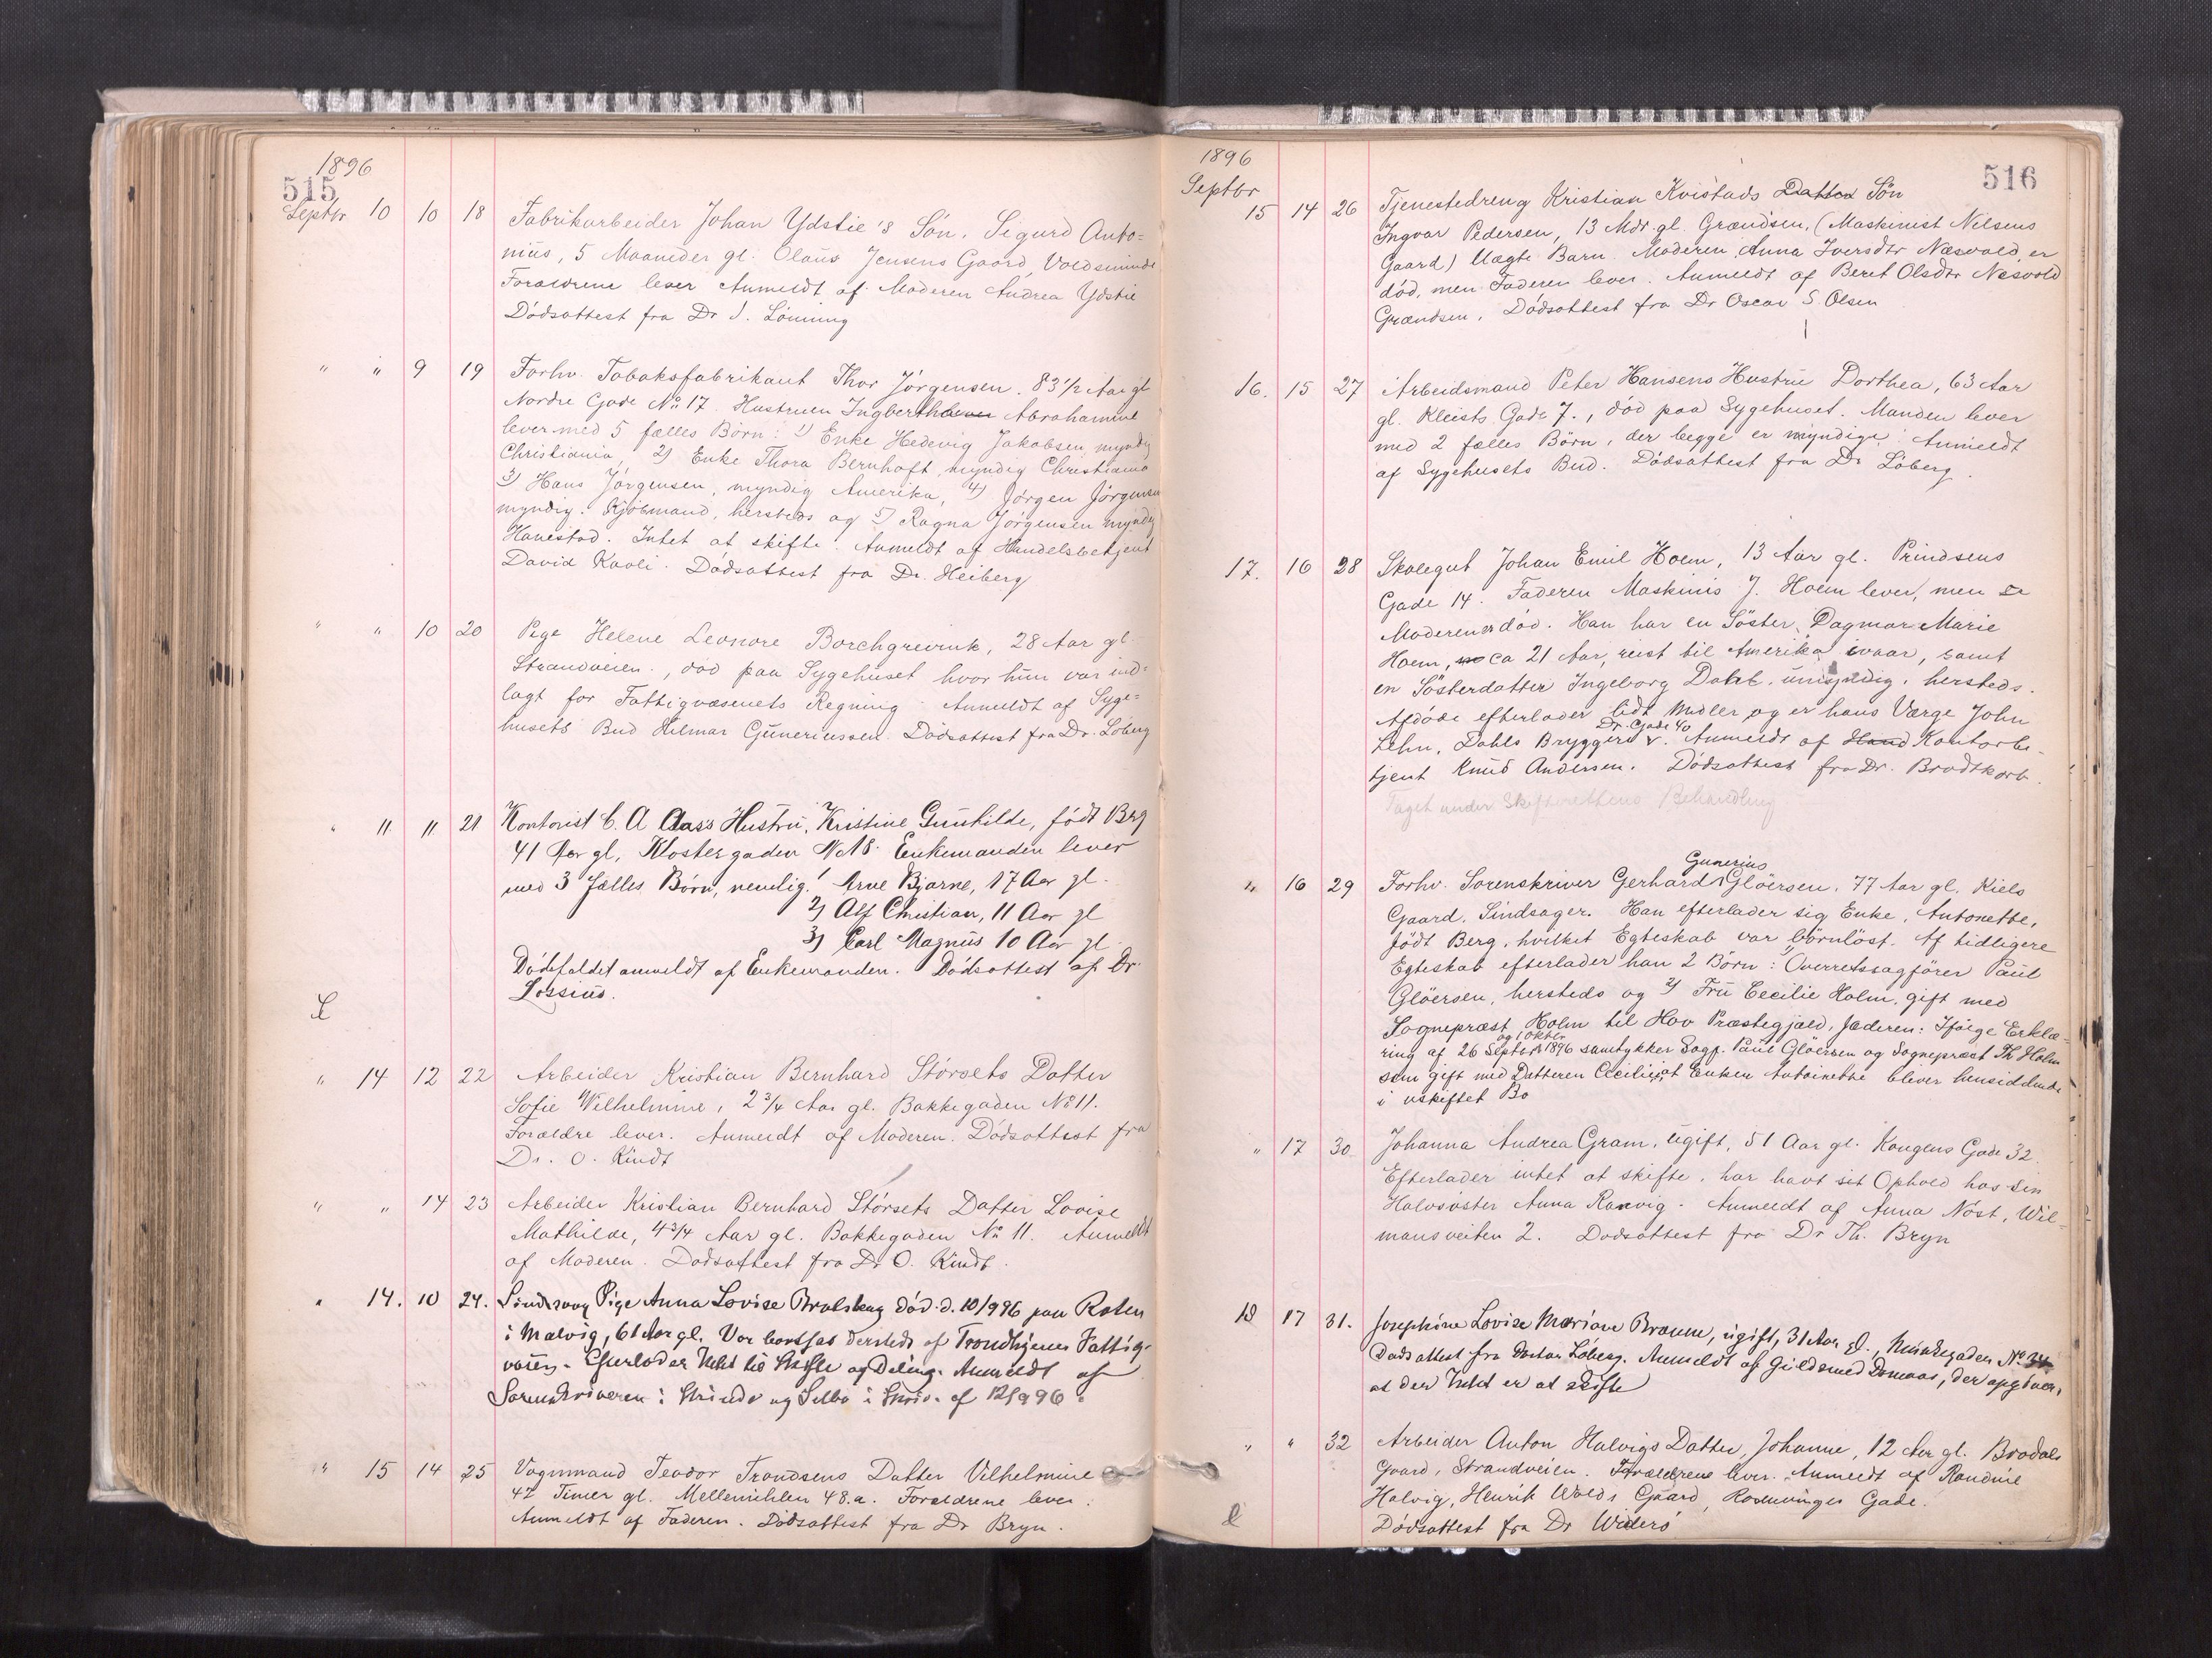 1896
515
Septbr 10 10 18 Fabrikarbeider Johan Ydstie's Sön, Sigurd Anto=
nius, 5 Maaneder gl. Olaus Jensens Gaard, Voldsminde
Forældrene lever Anmeldt af Moderen Andrea Ydstie
Dödsattest fra Dr J. Lönning
" " 9 19 Forhv. Tobaksfabrikant Thor Jörgensen. 83 1/2 Aar gl
Nordre Gade No 17. Hustruen Ingberth Abrahamine
lever med 5 fælles Börn: 1) Enke Hedevig Jakobsen myndig
Christiania, 2) Enke Thora Bernhoft, myndig Christiania
3) Hans Jörgensen, myndig Amerika, 4) Jörgen Jörgensen
myndig. Kjöbmand, hersteds og 5) Ragna Jörgensen myndig
Hanestad. Intet at skifte. Anmeldt af Handelsbetjent
David Kavli. Dödsattest fra Dr. Heiberg
" " 10 20 Pige Helene Leonore Borchgrevink, 28 Aar gl
Strandveien, död paa Sygehuset hvor hun var ind=
lagt for Fattigvæsenets Regning. Anmeldt af Syge=
husets Bud Hilmar Guneriussen. Dödsattest fra Dr. Löberg
" 11 11 21 Kontorist C. A Aas's Hustru, Kristine Gunhilde, född Berg
41 Aar gl, Klostergaden No 18. Enkemanden lever
med 3 Fælles Börn, nemlig: 1) Arne Bjarne, 17 Aar gl.
2) Alf Christian, 11 Aar gl
3) Carl Magnus 10 Aar gl.
Dödsfaldet anmeldt af Enkemanden. Dödsattest af Dr.
Lossius.
" 14 12 22 Arbeider Kristian Bernhard Störsets Datter
Sofie Wilhelmine, 2 3/4 Aar gl. Bakkegaden No 11.
Forældre lever. Anmeldt af Moderen. Dödsattest fra
Dr. O. Kindt
" " 14 23 Arbeider Kristian Bernhard Störsets Datter Lovise
Mathilde, 4 3/4 Aar gl. Bakkegaden No 11. Anmeldt
af Moderen. Dödsattest fra Dr O. Kindt.
" 14. 10 24. Sindssvag Pige Anna Lovise Bralskag död d. 10/9 96 paa Roten
i Malvig, 61 Aar gl. Var bortsat dersteds af Trondhjems Fattig-
væsen. Efterlader Intet til Skifte og Deling. Anmeldt af
Sorenskriveren i Strinde og Selbo i Skriv. af 12/9 96.
" 15 14 25 Vognmand Teodor Trondsens Datter Vilhelmine
42 Timer gl. Mellemihlen 48.a. Forældrene lever.
Anmeldt af Faderen. Dödsattest fra Dr Bryn.
1896
516
Septbr
15 14 26 Tjenestedreng Kristian Kvistads Datter Sön
Ingvar Pedersen, 13 Mdr. gl. Grændsen, (Maskinist Nilsens
Gaard) Uægte Barn. Moderen Anna Iversdtr Næsvold, er
död, men Faderen lever. Anmeldt af Beret Olsdtr Næsvold
Grændsen. Dödsattest fra Dr Oscar S. Olsen
16. 15 27 Arbeidsmand Peter Hansens Hustru Dorthea, 63 Aar
gl. Kleists Gade 7., död paa Sygehuset. Manden lever
med 2 fælles Börn, der begge er myndige. Anmeldt
af Sygehusets Bud. Dödsattest fra Dr Löberg.
17. 16 28 Skolegut Johan Emil Hoem, 13 Aar gl. Prindsens
Gade 14. Faderen Maskinis J. Hoem lever, men er
Moderen er död. Han har en Söster, Dagmar Marie
Hoem, ca 21 Aar, reist til Amerika ivaar, samt
en Sösterdatter Ingeborg Dahl, umyndig, hersteds.
Afdöde efterlader lidt Midler og er hans Værge John
Dr. Gade 40
Lehn, Dahls Bryggeri. Anmeldt af Hand Kontorbe-
tjent Knud Andersen. Dödsattest fra Dr. Brodtkorb.
Taget under Skifterettens Behandling
" 16 29 Forhv. Sorenskriver Gerhard Gunerius Glöersen, 77 Aar gl. Kiels
Gaard, Sindsager. Han efterlader sig Enke, Antonette,
född Berg, hvilket Egteskab var börnlöst. Af tidligere
Egteskab efterlader han 2 Börn: 1) Overretssagförer Paul
Glöersen, hersteds og 2) Fru Cecilie Holm, gift med
Sognepræst Holm til Hov Præstegjæld, Jæderen: Ifölge Erklæ-
ring af 26 Septbr og 1 Oktbr 1896 samtykker Sagf. Paul Glöersen og Sognepræst Th Holm
som gift med Datteren Cecilie, at Enken Antoinette bliver hensiddende
i uskiftet Bo
" 17 30 Johanna Andrea Gram, ugift, 51 Aar gl. Kongens Gade 32.
Efterlader intet at skifte, har havt sit Ophold hos sin
Halvsöster Anna Ranvig. Anmeldt af Anna Nöst, Wil-
mansveiten 2. Dödsattest fra Dr Th. Bryn
18 17 31. Josephine Lovise Mariane Braune, ugift, 31 Aar gl., Munkegaden No 34
Dödsattest fra Doctor Löberg. Anmeldt af Guldsmed Domaas, der opgiver,
at der Intet er at skifte
" " 32 Arbeider Anton Halvigs Datter, Johanne, 12 Aar gl. Brodals
Gaard, Strandveien. Forældrene lever. Anmeldt af Randine
Halvig, Henrik Wolds Gaard, Rosenvinges Gade.
Dödsattest fra Dr Widerö